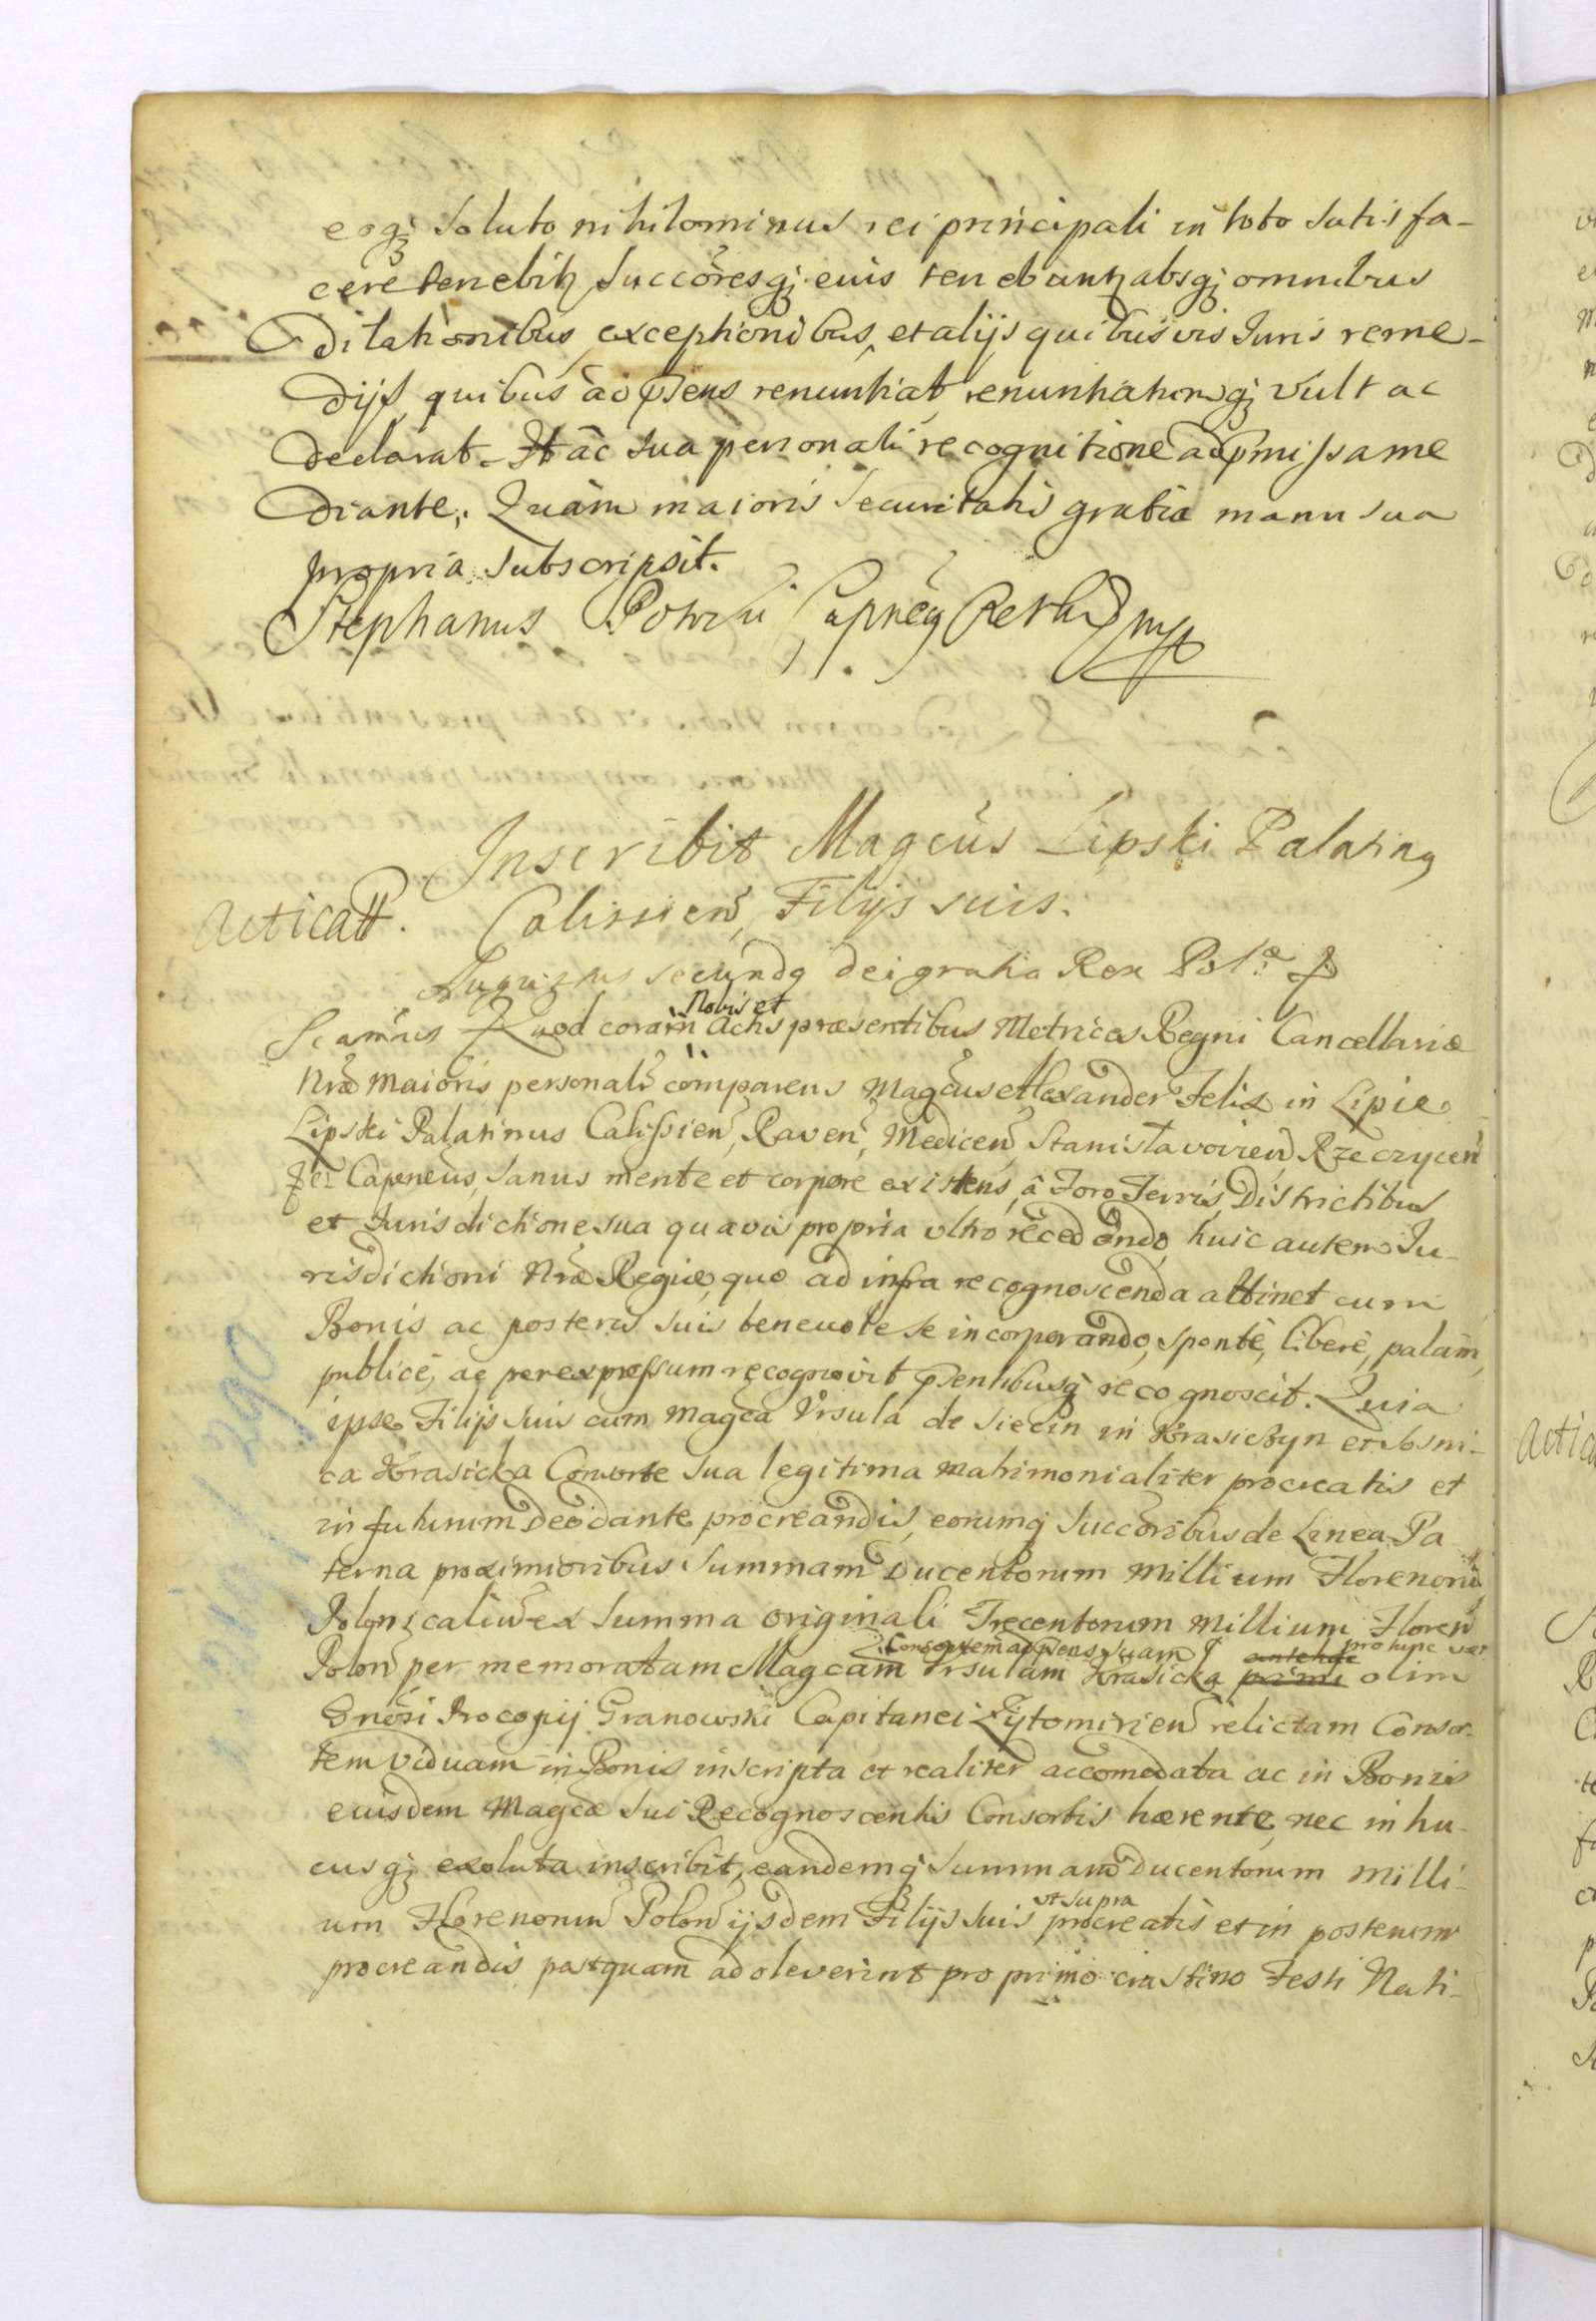 eoq; soluto nihilominus rei principali in toto satisfa-
cere tenebitʒ, Succoresq; eius tenebuntʒ absq; omnibus
dilationibus, exceptionibus, et alijs quibusvis Juris reme-
dijs, quibus ad p̃sens renuntiat, renuntiatumq; vult ac
declarat. Hac sua personali recognitione ad p̃missa me
diante. Quam maioris securitatis gratia manu sua
propria subscripsit.
Stephanus Potocki Capneg mp
Inscribit Magcus Lipski Palating
Acticatt. Calissien, Filijs suis.
Augustus secundg Dei gratia Rex Polæ &
Scamus Quod coram Nobis et Actis præsentibus Metrices Regni Cancellariæ
Nræ Maioris personalr comparens Magcus Alexander Felix in Lipie
Lipski Palatinus Calissien, Raven, Medicen, Stanisławovien, Rzeczycen
&c. Capneus, sanus mente et corpore existens, â Foro Terris, Districtibus
et Jurisdictione sua quavis propria ultro recedendo, huic autem Ju-
risdictioni Nræ Regiæ, quo ad infra recognoscenda attinet cum
Bonis ac posteris suis benevole se incorporando, sponte, libere, palam,
publice, ac per expressum recognovit p̃sentibusq; recognoscit. Quia
ipse Filijs suis cum Magca Ursula de Siecin in Krasiczyn et Sosni-
ca Krasicka Consorte sua legitima matrimonialiter procreatis et
in futurum Deo dante procreandis, eorumq; Succoribus de Linea Pa
terna proximioribus Summam Ducentorum Millium Florenorum
Polonicaliũ ex Summa originali Trecentorum Millium Floren
Polon per memoratam Magcam Consortem ad p̃sens suam Ursulam Krasicka pro tunc vero olim
Gnosi Procopij Granowski Capitanei Zytomirien relictam Consor-
tem viduam in Bonis inscripta et realiter accomodata ac in Bonis
eiusdem Magcæ sui Recognoscentis Consortis hærente, nec in hu-
cusq; exoluta inscribit, eandemq; Summam Ducentorum Milli-
um Florenorum Polon ijsdem Filijs suis ut supra procreatis et in posterum
procreandis postquam adoleverint pro primo crastino Festi Nati-